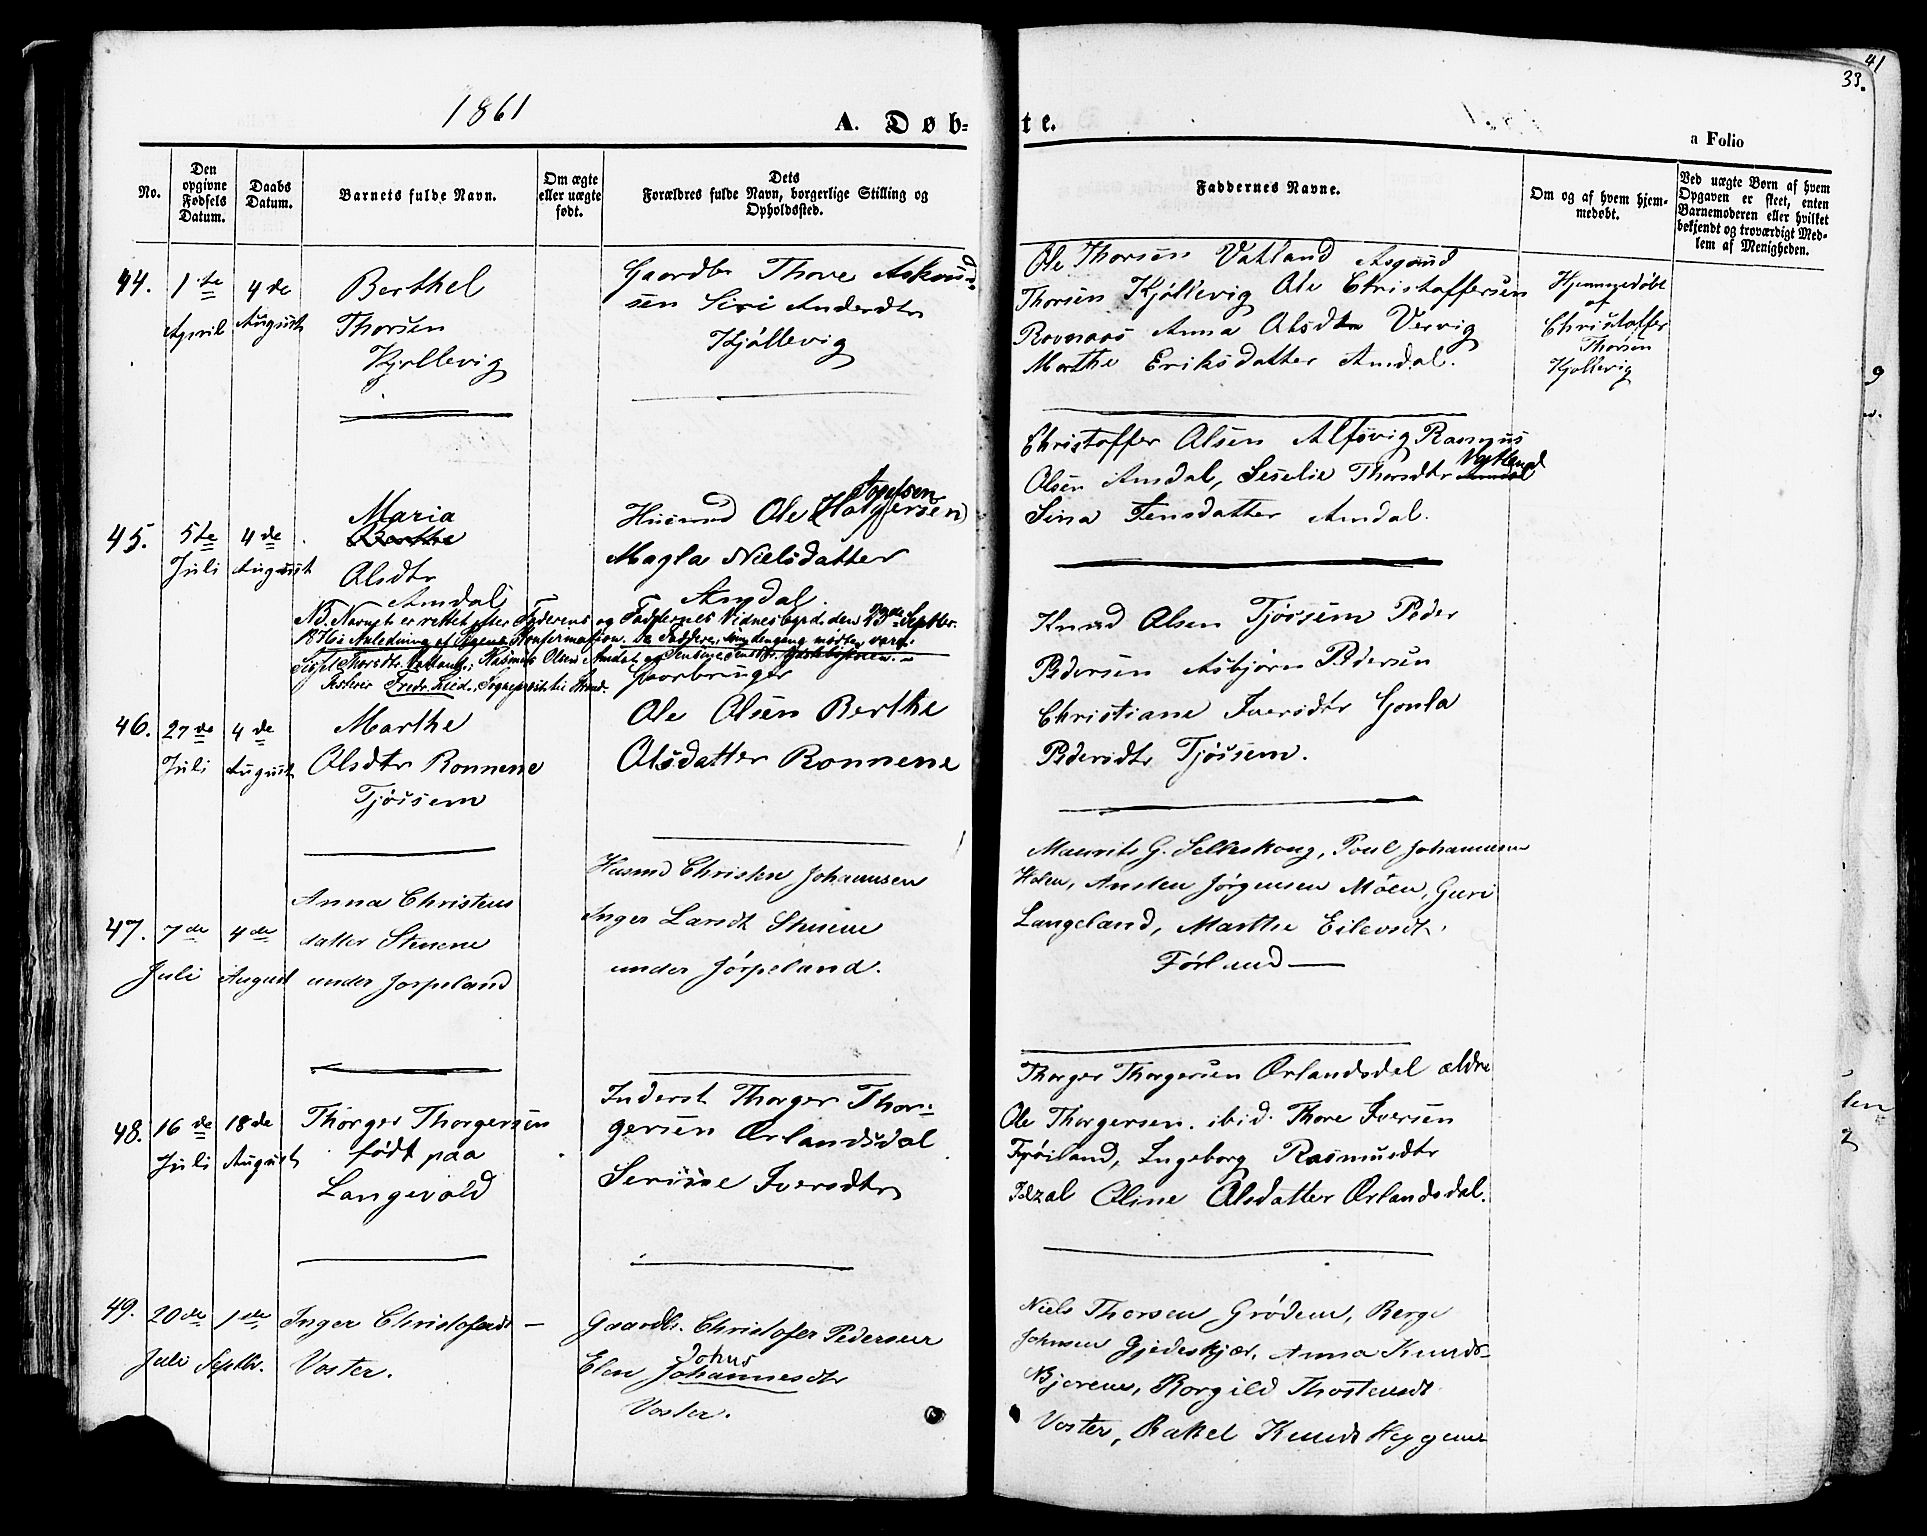 1861
A. Døb-
te.
41
33.
a Folio
No.
Den
opgivne
Fødsels
Datum.
Daabs
Datum.
Barnets fulde Navn.
Om ægte
eller uægte
født.
Dets
Forældres fulde Navn, borgerlige Stilling og
Opholdssted.
Faddernes Navne.
Om og af hvem hjem-
medøbt.
Ved uægte Børn af hvem
Opgaven er skeet, enten
Barnemoderen eller hvilket
bekjendt og troværdigt Med-
lem af Menigheden.
44.
1ste
April
4de
August
Berthel
Thorsen
Kjøllevig
Gaardbr Thore Askoud-
sen Siri Andersdtr
Kjøllevig
Ole Thorsen Vatland Asgoud
Thorsen Kjøllevig Ole Christoffersen
Rovnaas Anna Olsdtr Vervig
Marthe Eriksdatter Amdal.
Hjemmedøbt
af
Christoffer
Thorsen
Kjøllevig
45.
5te
Juli
4de
August
Maria
Berthe
Olsdtr
Amdal
Husmd Ole (Holgersen)
Magla Nielsdatter
Amdal.
Christoffer Olsen Alfsvig Rasmus
Olsen Amdal, Seselie Thorsdtr Vatland
Sina Jensdatter Amdal.
NB. Navnet er rettet efter Faderens og Faddernes Vidnesbyrd den Septbr.
Fredr. Lied, Sogneprest til Strand.
46.
27de
Juli
4de
August
Marthe
Olsdtr Ronnene
Tjøssem
Gaardbruger
Ole Olsen Berthe
Olsdatter Ronnene
Knud Olsen Tjøssem Peder
Pedersen Asbjørn Pedersen
Christiane Iversdtr Gonla
Pedersdtr Tjøssem.
47.
7de
Juli
4de
August
Anna Christens
datter Stuene
under Jørpeland
Husmd Christen Johannsen
Inger Larsdt Stuene
under Jørpeland.
Maurits G. Selleskong, Poul Johannesen
Holen, Austen Jørgensen Möen, Guri
Langeland, Marthe Eilevsdt,
Førland
48.
16de
Juli
18de
August
Thorger Thorgersen
født paa
Langevold
Inderst Thorger Thor-
gersen Ørlandsdal
Serine Iversdtr
Thorger Thorgersen Ørlandsdal ældre
Ole Thorgersen ibid. Thore Iversen
Frøiland, Ingeborg Rasmusdtr
Oline Olsdatter Ørlandsdal.
49.
20de
Juli
1ste
Septbr.
Inger Christofersdt
Voster.
Gaardbr. Christofer Pedersen
Elen Johannesdtr
Johns
Voster.
Niels Thorsen Grødem, Berge
Johnsen Gjedeskjær, Anna Knuds-
Bjørem, Borgild Thostensdt
Voster, Rakel Knudsdt Heggem